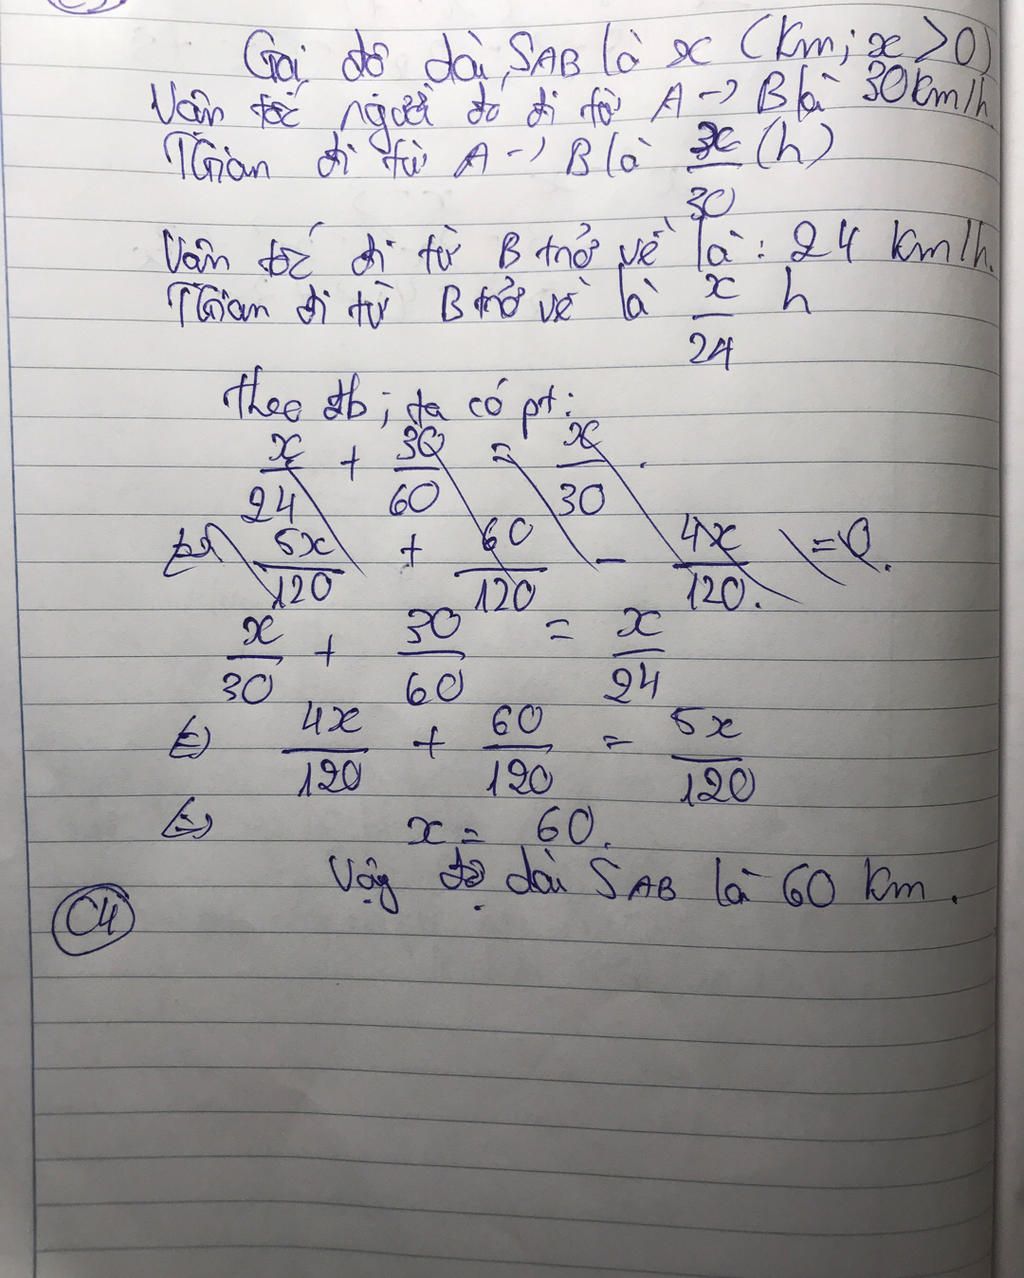 Gọi độ dài SAB là x (km; x > 0)
Vận tốc người đó đi từ A -> B là 30km/h
TGian đi từ A -> B là x/30 (h)
Vận tốc đi từ B trở về là : 24 km/h.
TGian đi từ B trở về là x/24 h
Theo đb ; ta có pt :
x/24 + 30/60 = x/30 .
<=> 5x/120 + 60/120 - 4x/120 = 0.
x/30 + 30/60 = x/24
<=> 4x/120 + 60/120 = 5x/120
<=> x = 60.
Vậy độ dài SAB là 60 km .
C4